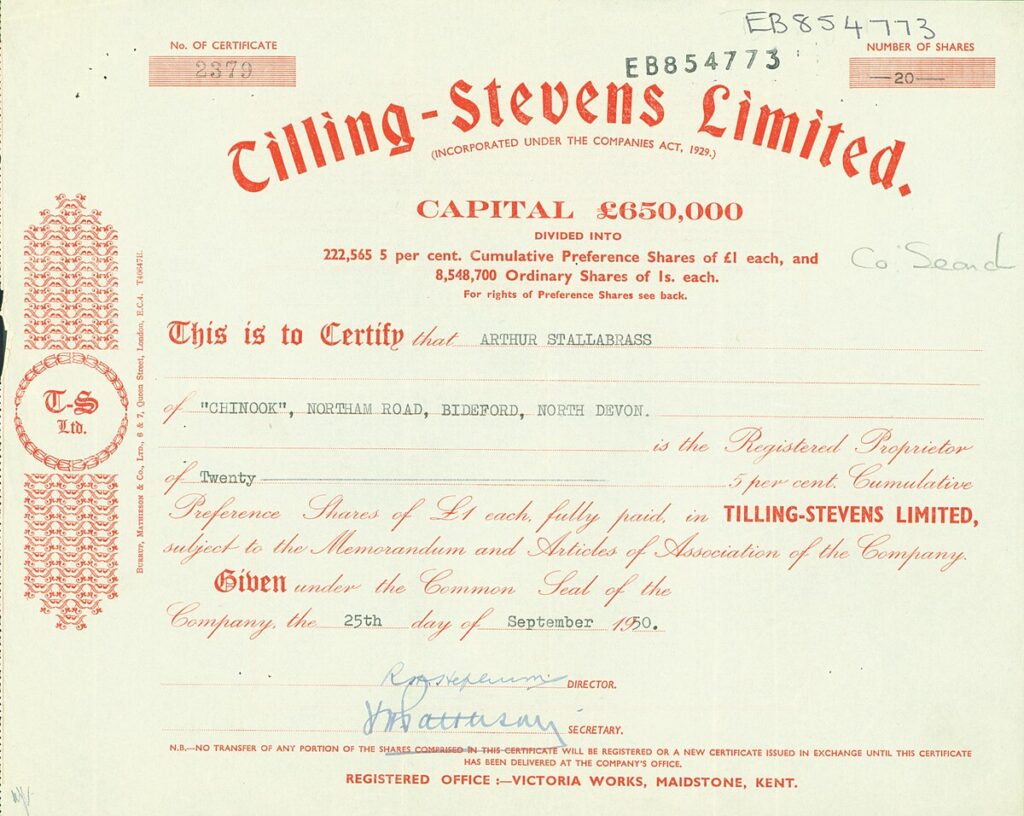 EB854773
No. OF CERTIFICATE
NUMBER OF SHARES
2379
EB854773
—20—
Tilling-Stevens Limited.
(INCORPORATED UNDER THE COMPANIES ACT, 1929.)
CAPITAL £650,000
DIVIDED INTO
222,565 5 per cent. Cumulative Preference Shares of £1 each, and
8,548,700 Ordinary Shares of 1s. each.
For rights of Preference Shares see back.
Co
This is to Certify that ARTHUR STALLABRASS
of "CHINOOK", NORTHAM ROAD, BIDEFORD, NORTH DEVON.
is the Registered Proprietor
of Twenty 5 per cent. Cumulative
Preference Shares of £1 each, fully paid, in TILLING-STEVENS LIMITED,
subject to the Memorandum and Articles of Association of the Company.
Given under the Common Seal of the
Company, the 25th day of September 1950.
DIRECTOR.
SECRETARY.
N.B.—NO TRANSFER OF ANY PORTION OF THE SHARES COMPRISED IN THIS CERTIFICATE WILL BE REGISTERED OR A NEW CERTIFICATE ISSUED IN EXCHANGE UNTIL THIS CERTIFICATE
HAS BEEN DELIVERED AT THE COMPANY'S OFFICE.
REGISTERED OFFICE :—VICTORIA WORKS, MAIDSTONE, KENT.
T-S
Ltd.
BURRUP, MATHIESON & CO., LTD., 6 & 7, Queen Street, London, E.C.4.